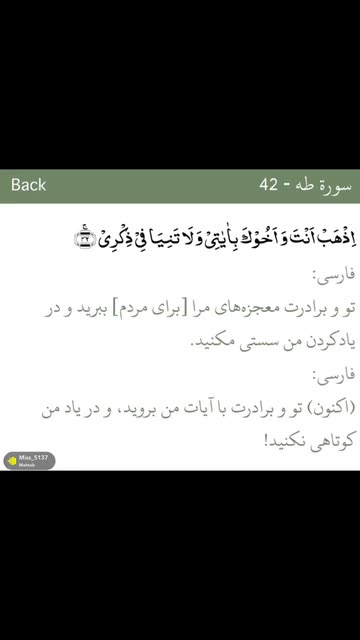 Back
سورة طه - 42
اِذْهَبْ اَنْتَ وَ اَخُوْكَ بِاٰيٰتِيْ وَ لَا تَنِيَا فِيْ ذِكْرِيْ ۚ ۝۴۲
فارسی:
تو و برادرت معجزه‌های مرا [برای مردم] ببرید و در
یادکردن من سستی مکنید.
فارسی:
(اکنون) تو و برادرت با آیات من بروید، و در یاد من
کوتاهی نکنید!
Miss_5137
Mahtab